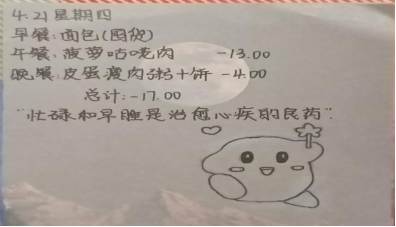 4.21星期四
早餐:面包(囤货)
午餐:菠萝咕咾肉 -13.00
晚餐:皮蛋瘦肉粥+饼 -4.00
总计:-17.00
“忙碌和早睡是治愈心疾的良药”.